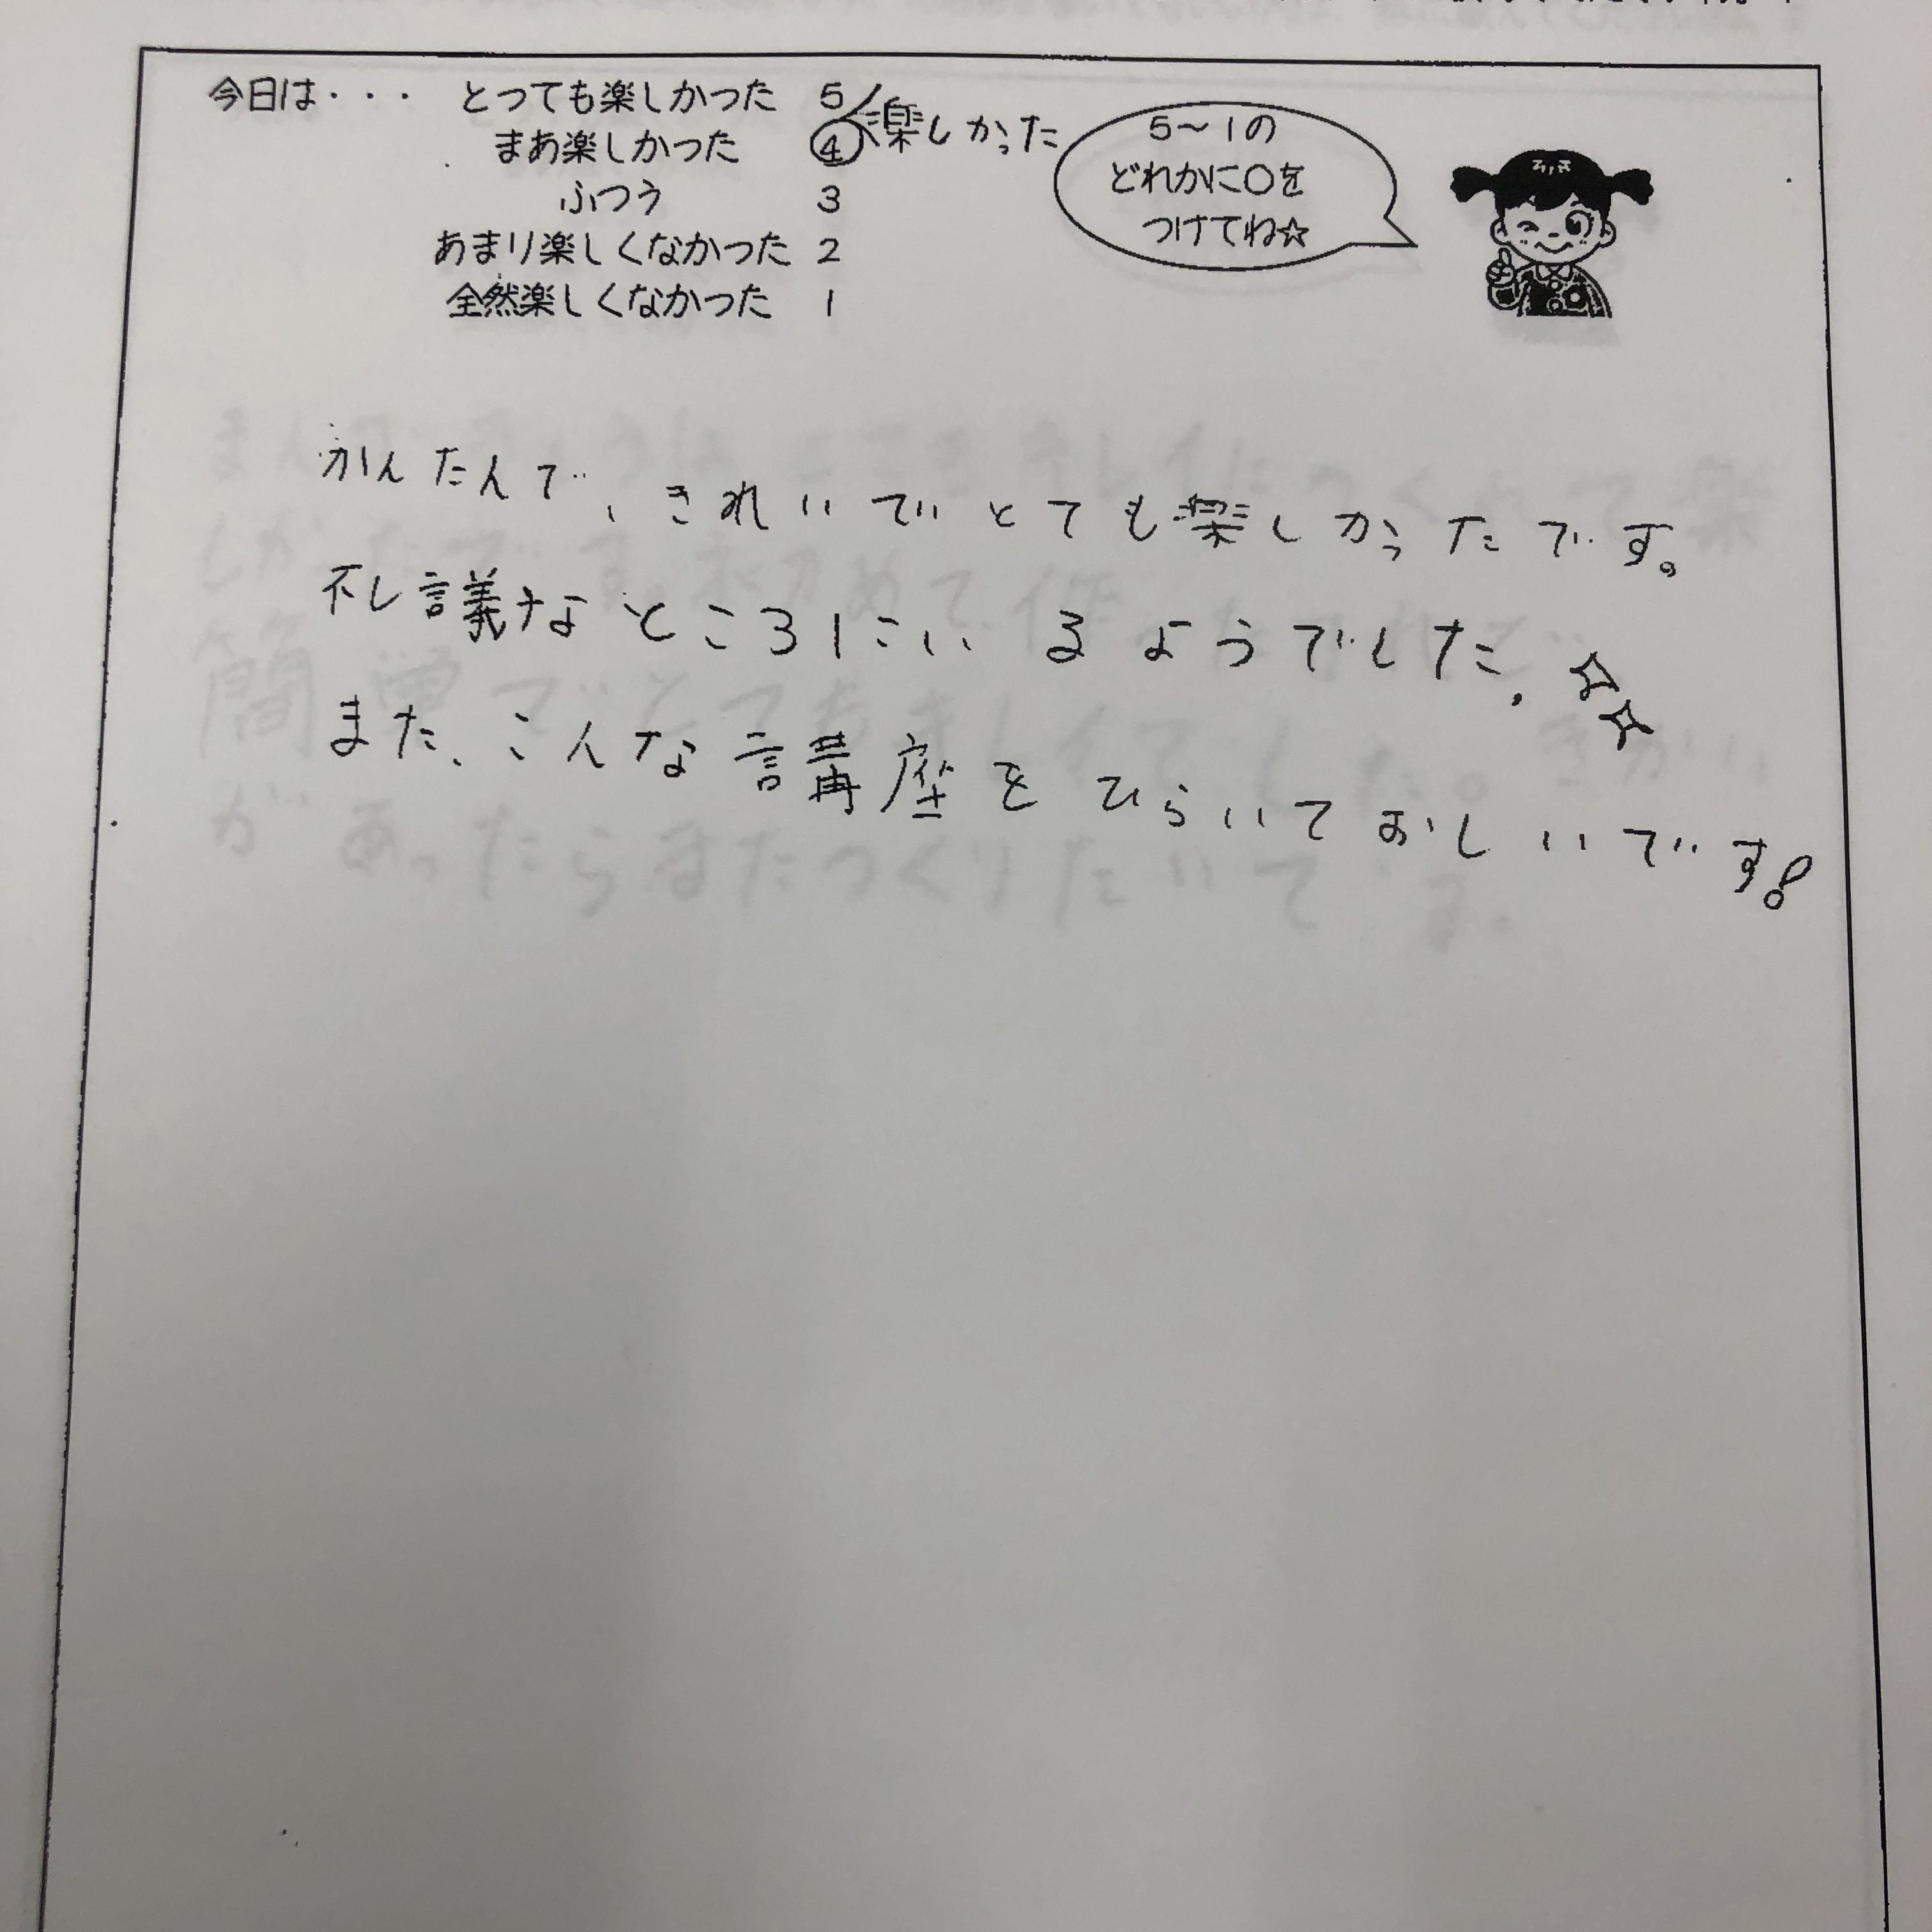 今日は・・・ とっても楽しかった 5
まあ楽しかった 4 楽しかった
ふつう 3
あまり楽しくなかった 2
全然楽しくなかった 1
5～1の
どれかに○を
つけてね☆
かんたんで、きれいでとても楽しかったです。
不し議なところにいるようでした。
また、こんな講座をひらいてほしいです!